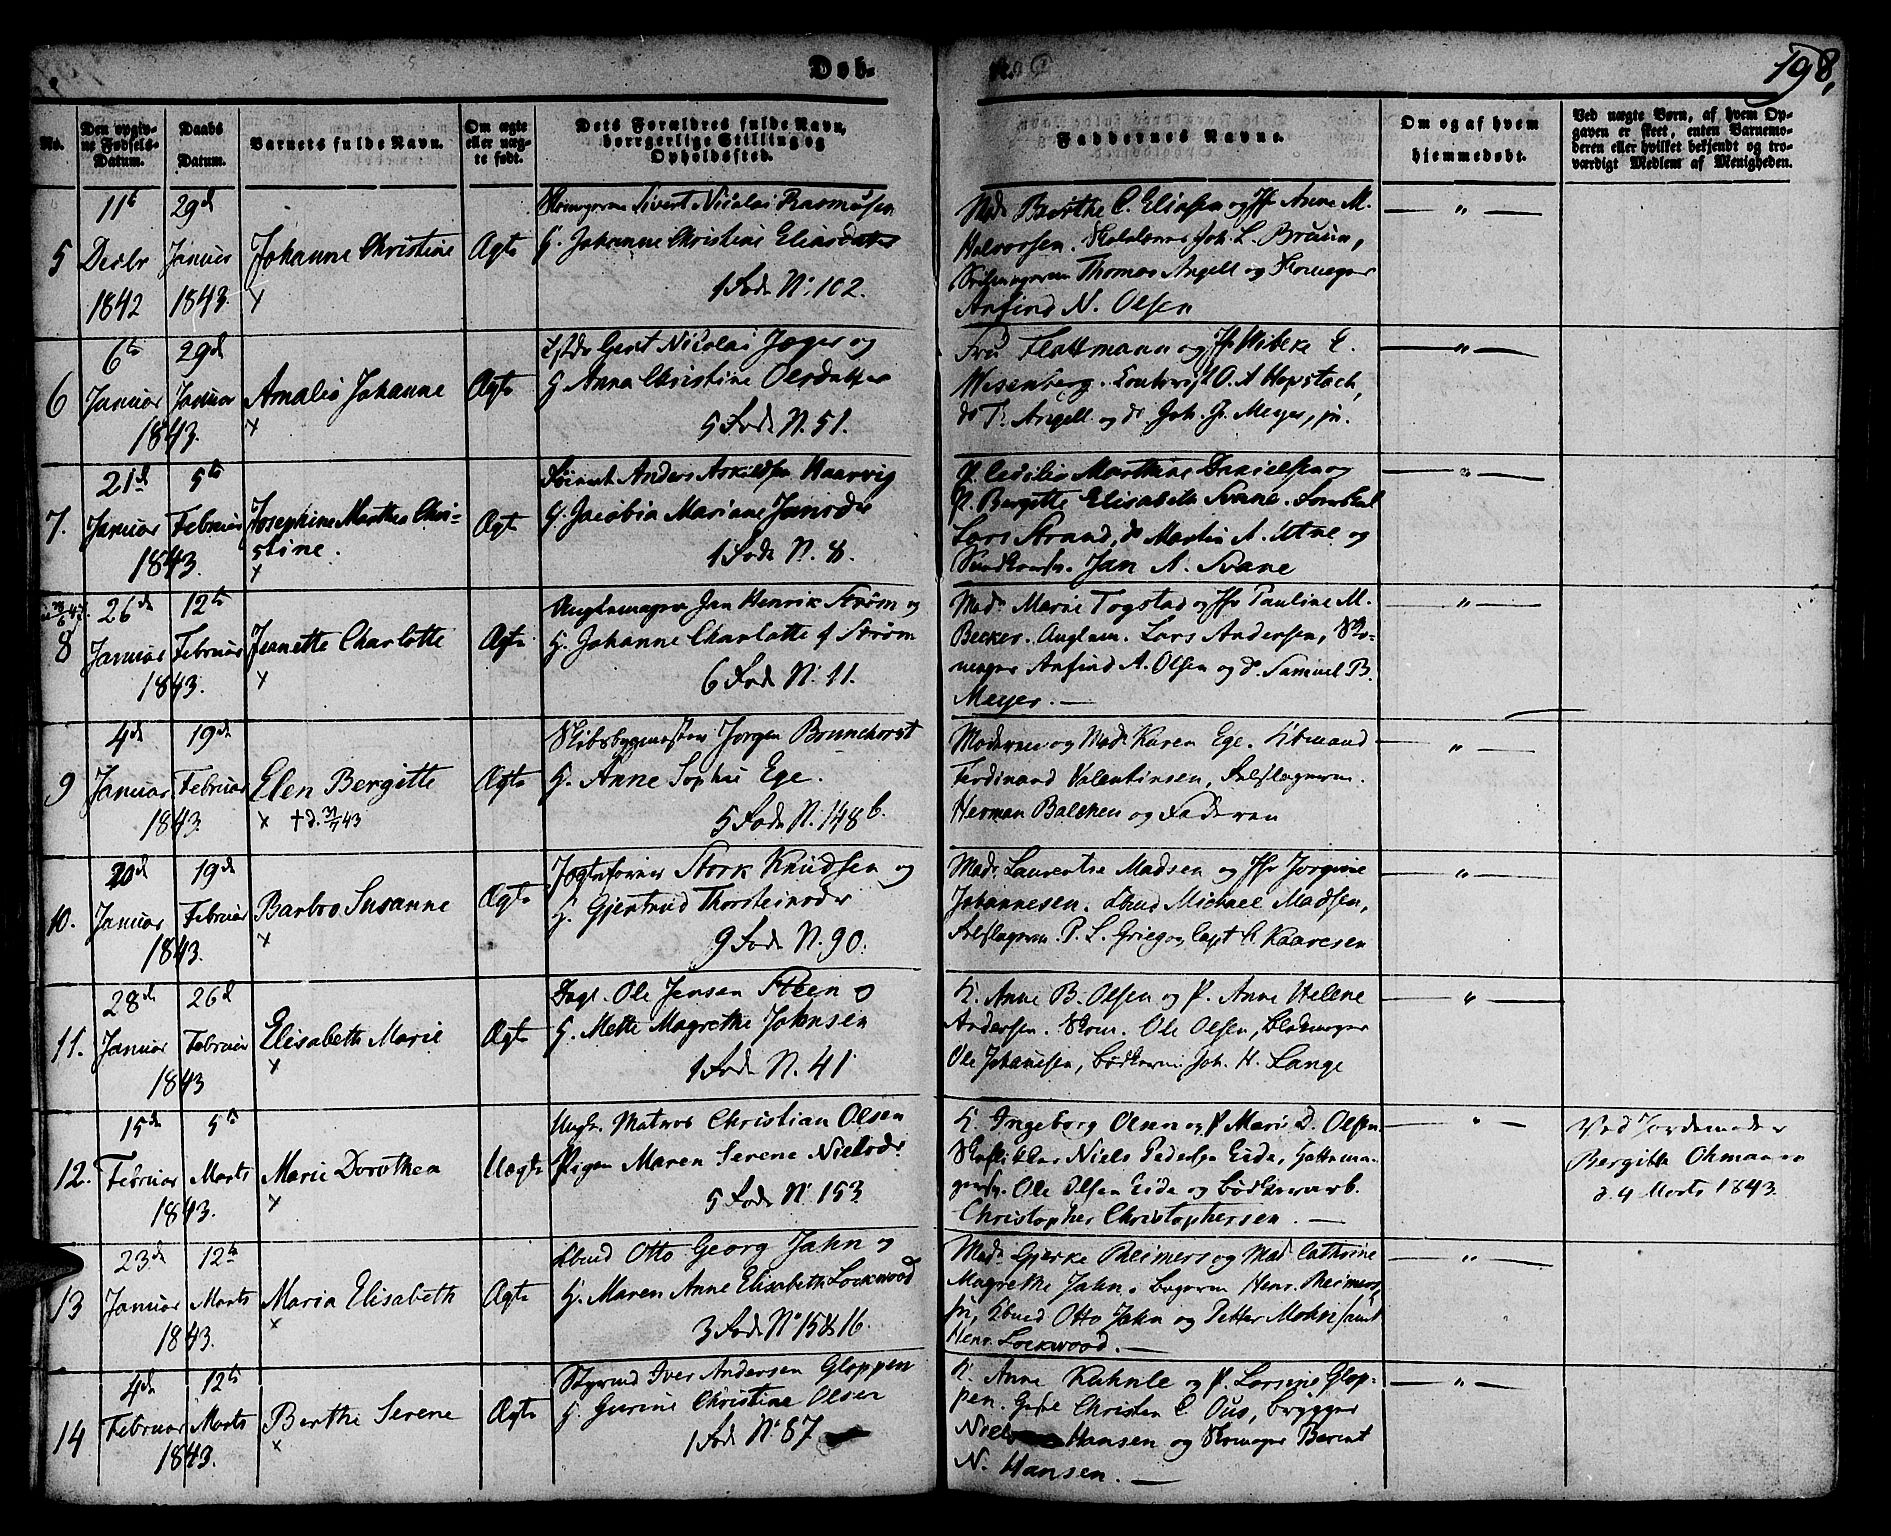 Døb-
198,
No.
Den opgiv-
ne Fødsels-
Datum.
Daabs
Datum.
Barnets fulde Navn.
Om ægte
eller uæg-
te født.
Dets Forældres fulde Navn,
borgerlige Stilling og
Opholdssted.
Faddernes Navne.
Om og af hvem
hjemmedøbt.
Ved uægte Børn, af hvem Op-
gaven er skeet, enten Barnemo-
deren eller hvilket bekjendt og tro-
værdigt Medlem af Menigheden.
5
11te
Decbr
1842
29de
Januar
1843.
Johanne Christine
Ægte
Sivert Nicolai Rasmussen
H. Johanne Christine Eliasdatter
1 Fode No. 102.
Mad. Berthe C. Eliasen og Jfr Anne M.
Halvorsen. Joh. L. Bruun,
Thomas Angell og Skomager
Anfind N. Olsen
6
6te
Januar
29de
Januar
1843.
Amalie Johanne
Ægte
Gert Nicolai Jæger og
H. Anna Christine Olsdatter
5 Fode N. 51.
Fru Flottmann og Jfr Wibeke E.
Wesenberg. O. A. Hopstock,
do T. Angell og do Joh. J. Meyer, jn.
7.
21de
Januar
5te
Februar
1843.
Josephine Marthea Chri-
stine.
Ægte
Anders Askildsen Haarvig
H. Jacobia Mariane Jansdr
1 Fode N. 8.
P. Cecilie Marthine Danielsen og
P. Bergitte Elisabeth Svane.
Lars Strand, do Martin A. Utne og
Jan A. Svane
8
26de
Januar
12te
Februar
1843.
Jeanette Charlotte
Ægte
Jan Henrik Strøm og
H. Johanne Charlotte f. Strøm
6 Fode N. 11.
Mad. Marie Togstad og Jfr Pauline M.
Becker. Lars Andersen, Sko-
mager Anfind A. Olsen og do Samuel B.
Meyer. —
9
4de
Januar
19de
Februar
1843.
Elen Bergitte
x † d. 43
Ægte
Skibsbygmester Jørgen Brunchorst
H. Anne Sophie Ege.
5 Fode N. 148 b.
Moderen og Mad. Karen Ege.
Ferdinand Valentinsen,
Herman Balchen og Faderen
10.
20de
Januar
19de
Februar
1843.
Barbro Susanne
Ægte
Stork Knudsen og
H. Gjertrud Thorsteinsdr
9 Fode N. 90.
Mad. Laurentse Madsen og Jfr Jorgine
Johannesen. Michael Madsen,
P. L. Grieg og Capt C. Kaaresen
11.
28de
Januar
26de
Februar
1843
Elisabeth Marie
Ægte
Dagl. Ole Jensen Steen og
H. Mette Magrethe Johnsen
1 Fode N. 41
K. Anne B. Olsen og P. Anne Helene
Andersen. Skom. Ole Olsen,
Ole Johannesen, Joh. H. Lange
12.
15de
Februar
5te
Marts
1843.
Marie Dorothea
Uægte
Ungk. Matros Christian Olsen
Pigen Maren Serene Nielsdr
5 Fode N. 153
K. Ingeborg Olsen og P. Marie D. Olsen
Niels Pedersen Eide, Hattema-
Ole Olsen Eide og
Christopher Christophersen. —
Ved Jordemoder
Bergitte Ohmann
d. 4 Marts 1843.
13
23de
Januar
12te
Marts
1843.
Maria Elisabeth
Ægte
Otto Georg Jahn og
H. Maren Anne Elisabeth Lockwood
3 Fode No 15 & 16.
Mad. Gjerke Reimers og Mad. Cathrine
Magrethe Jahn. Henr. Reimers,
jn, Otto Jahn og Petter Mohn samt
Henr. Lockwood. —
14
4de
Februar
12te
Marts
1843.
Berthe Serene
Ægte
Styrmd Iver Andersen Gloppen
H. Gurine Christine Olsen
1 Fode No 87
K. Anne Kahnle og P. Lorsine Glop-
pen. Christen C. Ous, Brygger
Niels Hansen og Skomager Berent
N. Hansen. —